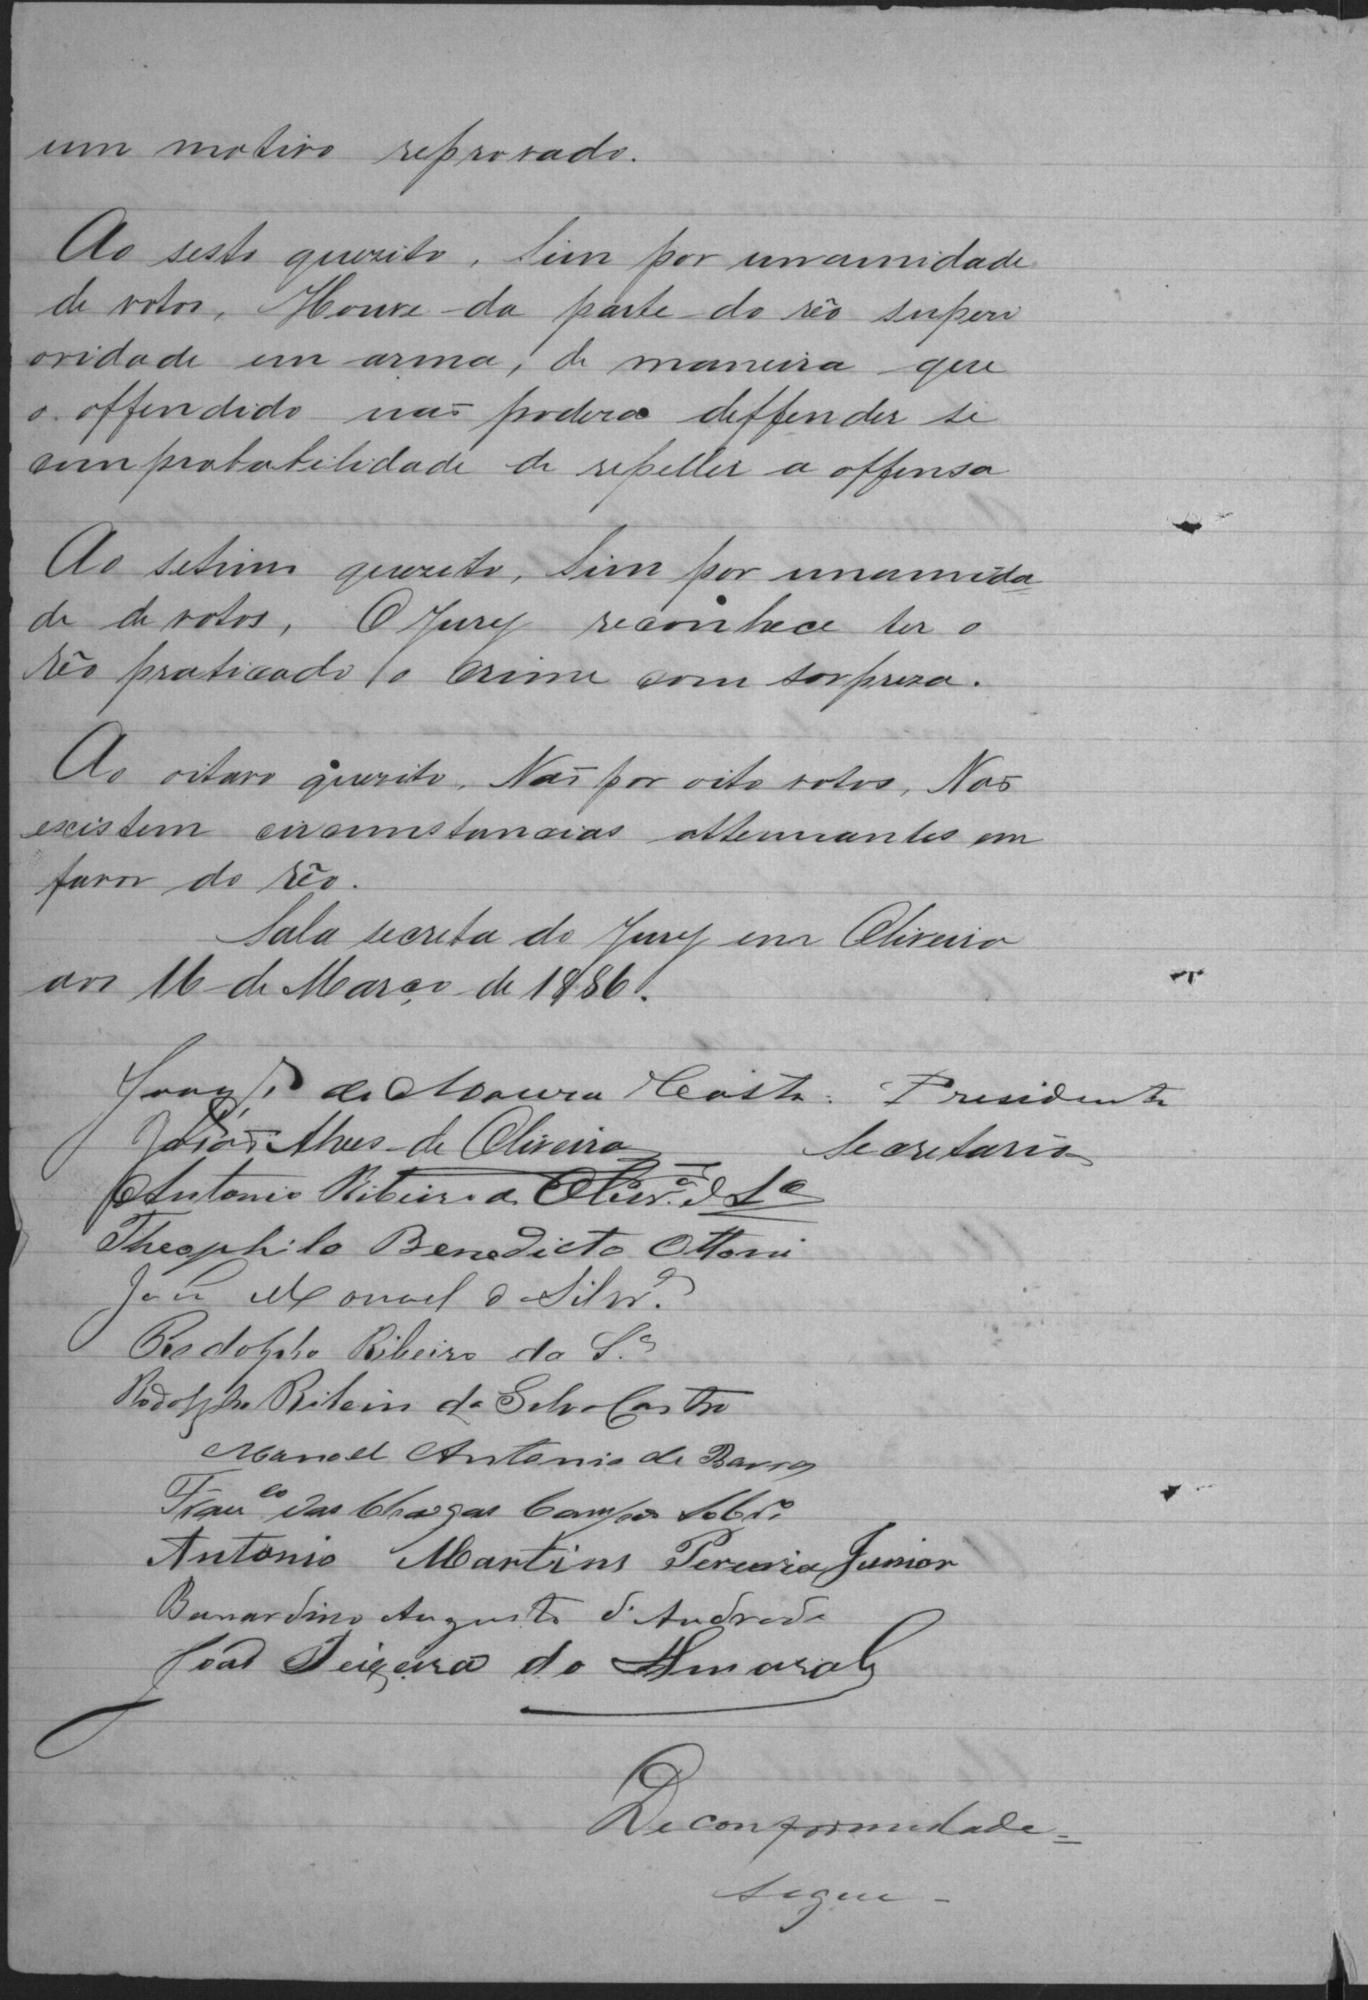 um motivo reprovado.
Ao sesto quezito, Sim por unamidade
de votos, Houve da parte do réo superi
oridade em arma, de maneira que
o offendido não podera deffender se
com probabilidade de repeller a offensa
Ao setimo quezito, Sim por unamida
de de votos, O Jury reconhece ter o
réo praticado o crime com sorpreza.
Ao oitavo quezito, Não por oito votos, Não
existem circumstancias attenuantes em
favor do réo.
Sala secreta do Jury em Oliveira
aos 16 de Março de 1886.
de Moura Costa. Presidente
João Alves de Oliveira Secretario
Antonio Ribeiro de Olivr.ª e S.ª
Theophilo Benedicto Ottoni
Manoel da Silvr.ª
Rodolpho Ribeiro da S.ª
Rodolpho Ribeiro da Silva Castro
Manoel Antonio de Barros
Fran.co das Chagas Campos Sobr.o
Antonio Martins Pereira Junior
Bernardino Augusto d'Andrade
João Teixeira do Amaral
De conformidade
segue